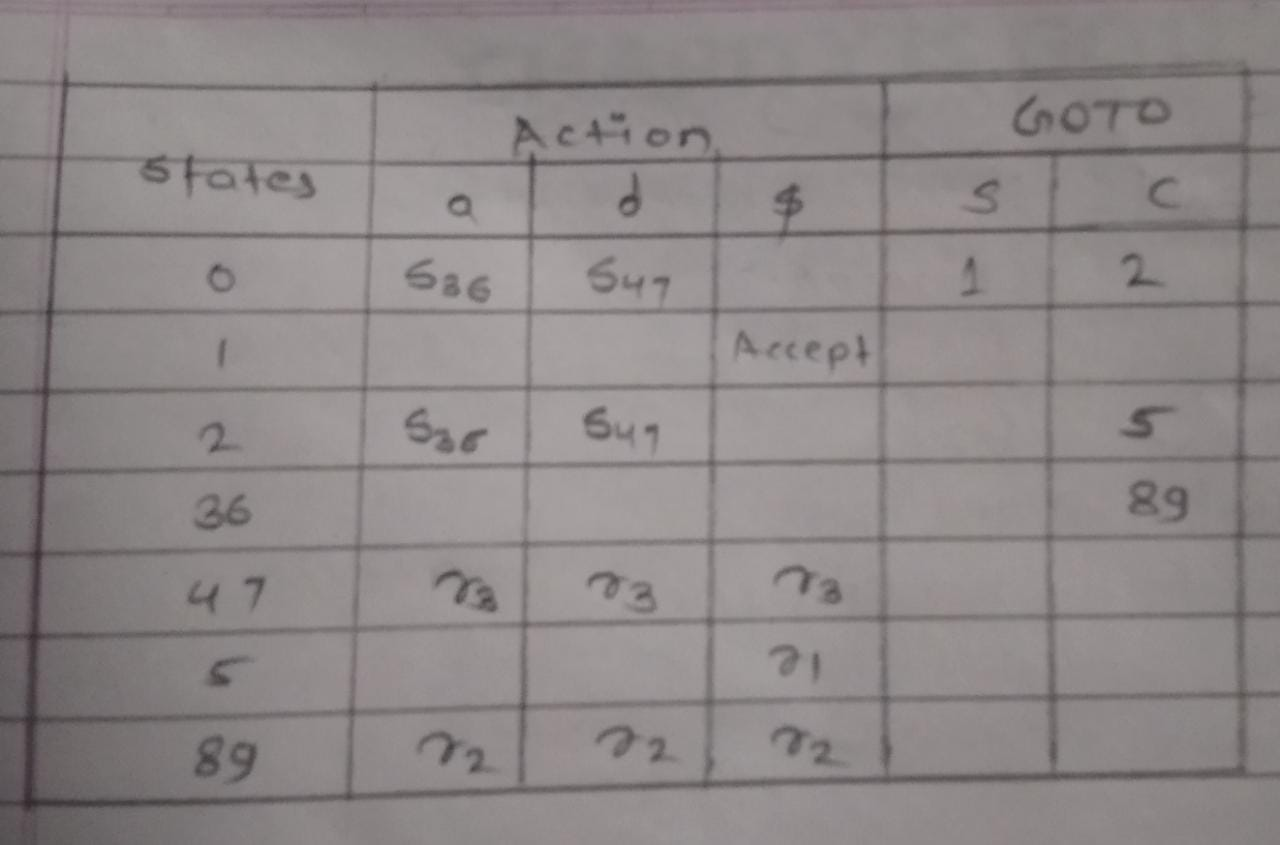 Action GOTO
States a d $ S C
0 S36 S47 1 2
1 Accept
2 S36 S47 5
36 89
47 r3 r3 r3
5 r1
89 r2 r2 r2